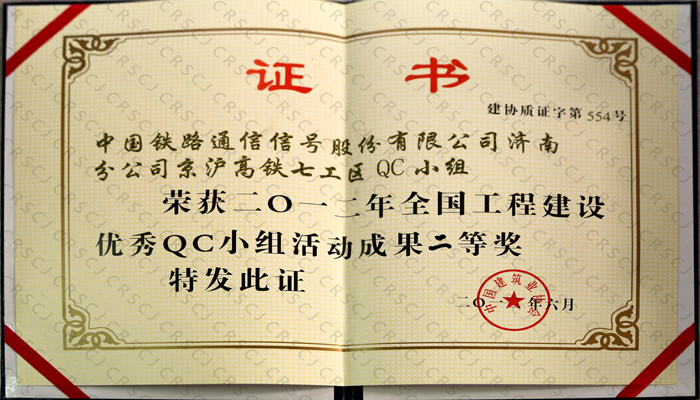 证 书
建协质证字第 554号
中国铁路通信信号股份有限公司济南
分公司京沪高铁七工区 QC 小组
荣获二〇一二年全国工程建设
优秀QC小组活动成果二等奖
特发此证
中国建筑业协会
二〇一 年六月
CRSCJ